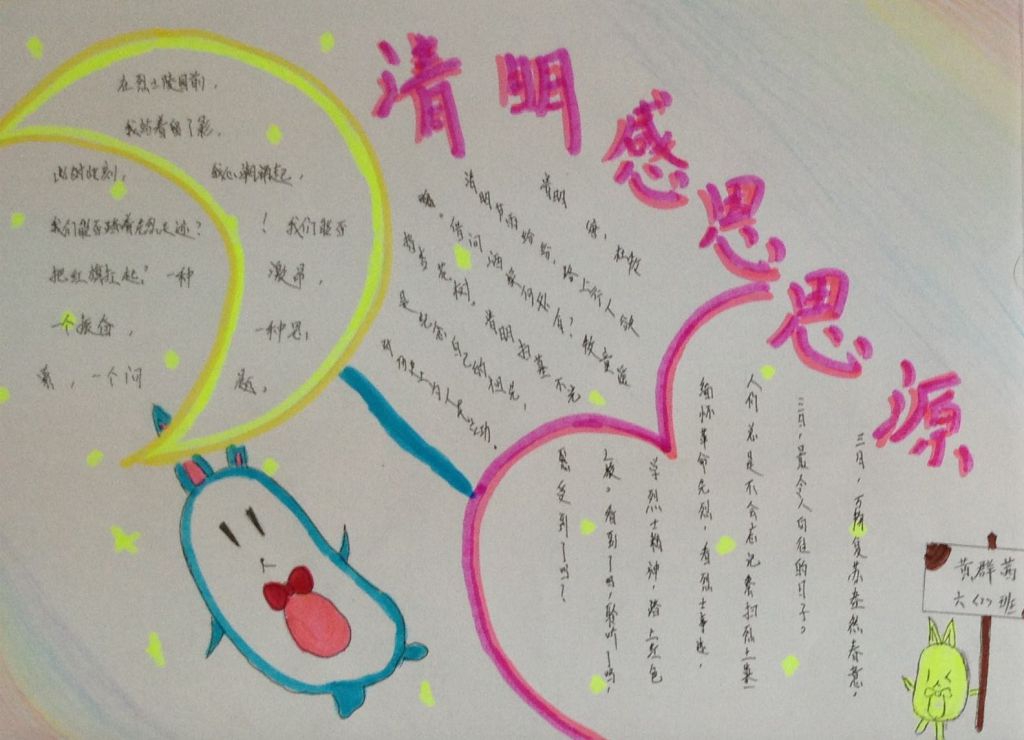 清明感恩思源
在烈士陵园前，
我站着留了影，
此时此刻， 我心潮澎起，
我们能否踏着先烈足迹？ ！我们能否
把红旗扛起？一种 激昂，
一个振奋， 一种思
索，一个问 题。
清明
清明节雨纷纷，路上行人欲
借问酒家何处有？牧童遥
指杏花村。清明扫墓不光
是纪念自己的祖先，
三月，万物复苏盎然春意，
三月，最令人向往的日子。
人们总是不会忘记祭扫烈士墓
缅怀革命先烈，看烈士事迹，
学烈士精神，踏上红色
之旅。看到了吗，聆听了吗，
感受到了吗？
黄群茜
六(二)班